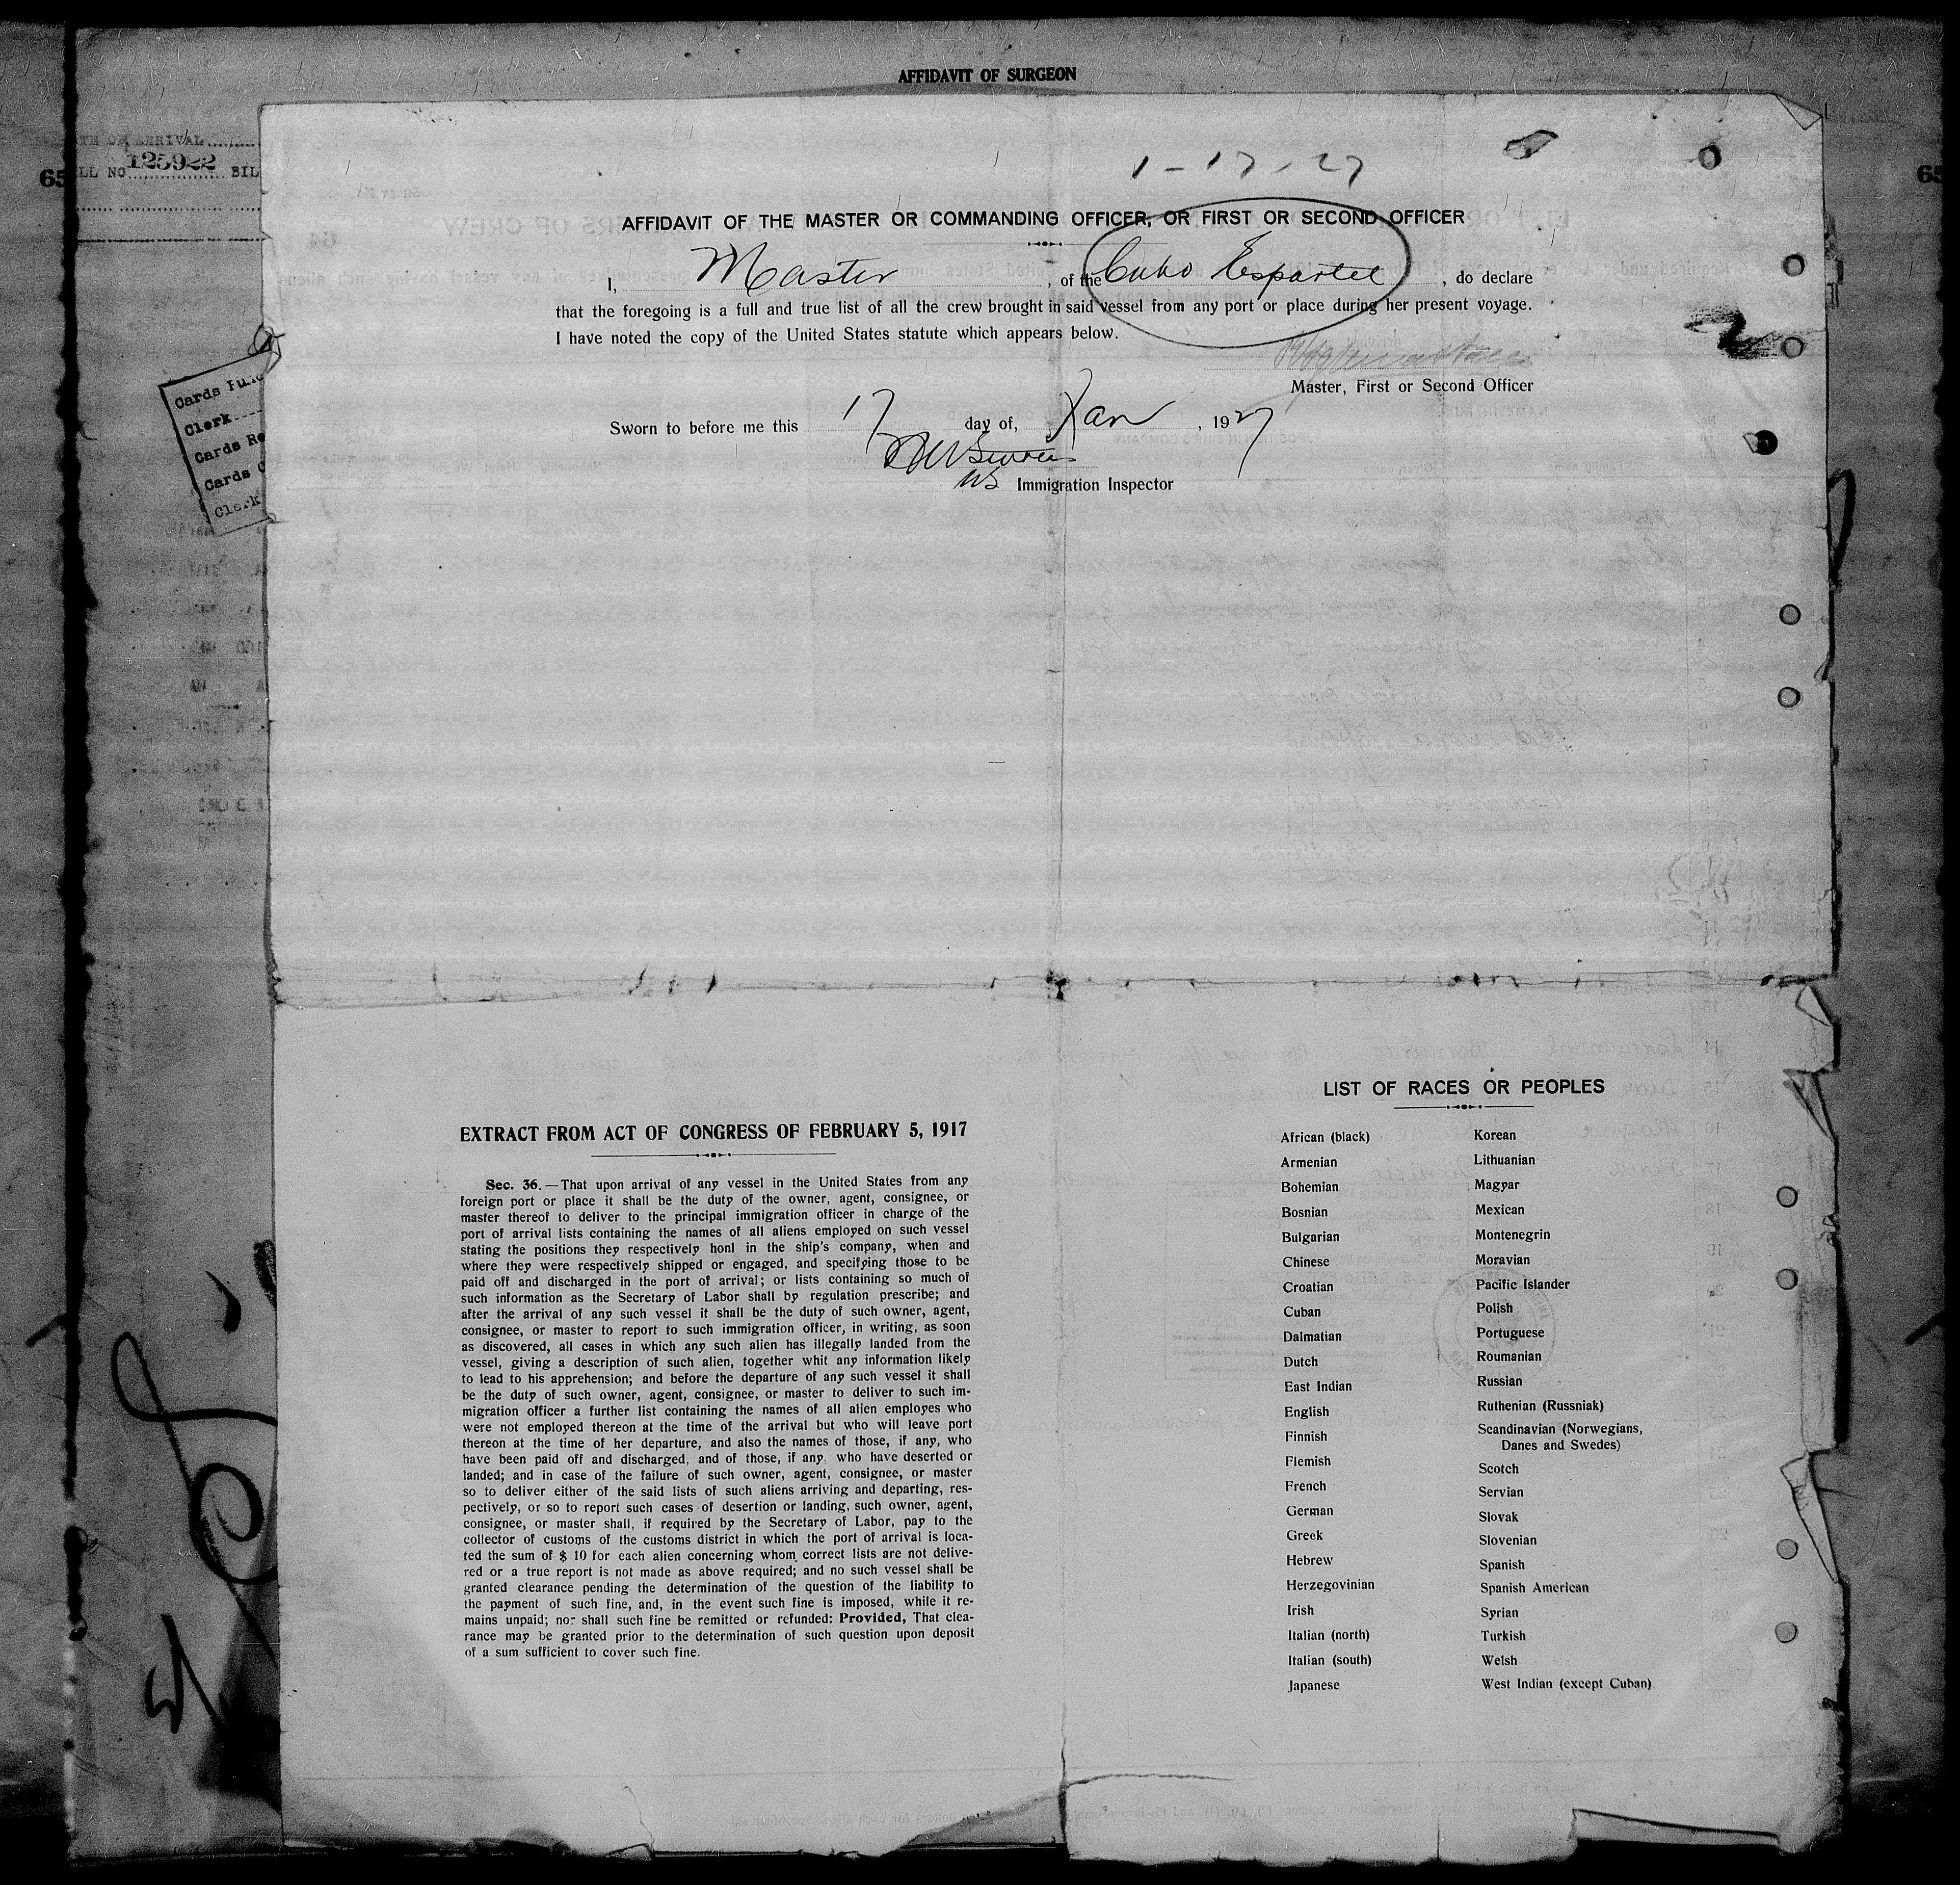 AFFIDAVIT OF SURGEON
125922
LL NO. BIL
65
65
Cards
Clerk
Cards Re
Cards
Clerk
1-17-27
AFFIDAVIT OF THE MASTER OR COMMANDING OFFICER, OR FIRST OR SECOND OFFICER
I, Master, of the Cabo Espartel, do declare
that the foregoing is a full and true list of all the crew brought in said vessel from any port or place during her present voyage.
I have noted the copy of the United States statute which appears below.
Master, First or Second Officer
Sworn to before me this 17 day of, Jan, 1927
US Immigration Inspector
EXTRACT FROM ACT OF CONGRESS OF FEBRUARY 5, 1917
Sec. 36.—That upon arrival of any vessel in the United States from any
foreign port or place it shall be the duty of the owner, agent, consignee, or
master thereof to deliver to the principal immigration officer in charge of the
port of arrival lists containing the names of all aliens employed on such vessel
stating the positions they respectively honl in the ship's company, when and
where they were respectively shipped or engaged, and specifying those to be
paid off and discharged in the port of arrival; or lists containing so much of
such information as the Secretary of Labor shall by regulation prescribe; and
after the arrival of any such vessel it shall be the duty of such owner, agent,
consignee, or master to report to such immigration officer, in writing, as soon
as discovered, all cases in which any such alien has illegally landed from the
vessel, giving a description of such alien, together whit any information likely
to lead to his apprehension; and before the departure of any such vessel it shall
be the duty of such owner, agent, consignee, or master to deliver to such im-
migration officer a further list containing the names of all alien employes who
were not employed thereon at the time of the arrival but who will leave port
thereon at the time of her departure, and also the names of those, if any, who
have been paid off and discharged, and of those, if any, who have deserted or
landed; and in case of the failure of such owner, agent, consignee, or master
so to deliver either of the said lists of such aliens arriving and departing, res-
pectively, or so to report such cases of desertion or landing, such owner, agent,
consignee, or master shall, if required by the Secretary of Labor, pay to the
collector of customs of the customs district in which the port of arrival is loca-
ted the sum of $ 10 for each alien concerning whom correct lists are not delive-
red or a true report is not made as above required; and no such vessel shall be
granted clearance pending the determination of the question of the liability to
the payment of such fine, and, in the event such fine is imposed, while it re-
mains unpaid; nor shall such fine be remitted or refunded: Provided, That clea-
rance may be granted prior to the determination of such question upon deposit
of a sum sufficient to cover such fine.
LIST OF RACES OR PEOPLES
African (black)
Armenian
Bohemian
Bosnian
Bulgarian
Chinese
Croatian
Cuban
Dalmatian
Dutch
East Indian
English
Finnish
Flemish
French
German
Greek
Hebrew
Herzegovinian
Irish
Italian (north)
Italian (south)
Japanese
Korean
Lithuanian
Magyar
Mexican
Montenegrin
Moravian
Pacific Islander
Polish
Portuguese
Roumanian
Russian
Ruthenian (Russniak)
Scandinavian (Norwegians,
Danes and Swedes)
Scotch
Servian
Slovak
Slovenian
Spanish
Spanish American
Syrian
Turkish
Welsh
West Indian (except Cuban)